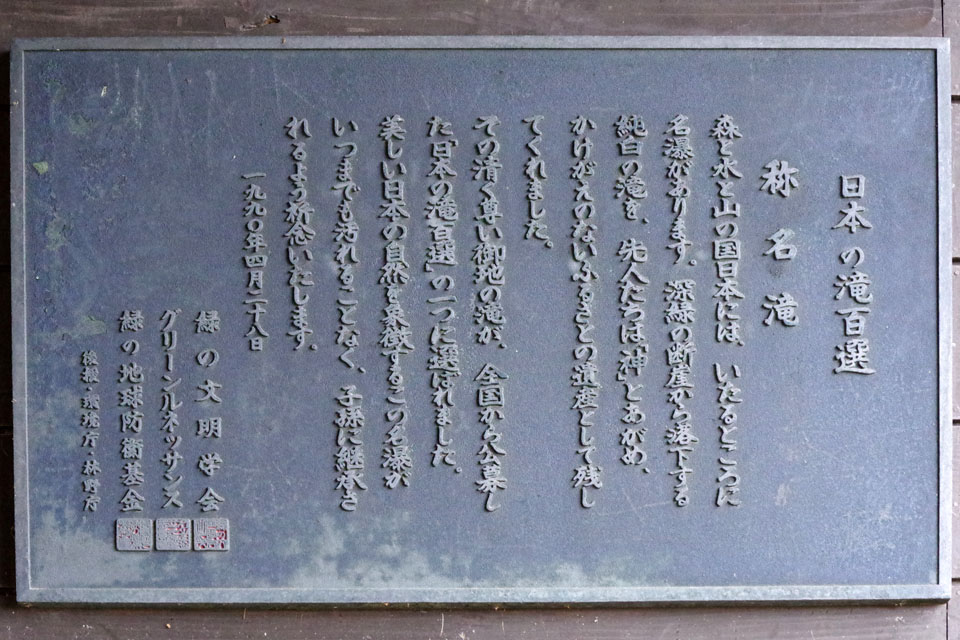 日本の滝百選
称名滝
森と水と山の国日本には、いたるところに
名瀑があります。深緑の断崖から落下する
純白の滝を、先人たちは神とあがめ、
かけがえのないふるさとの遺産として残し
てくれました。
その清く尊い御地の滝が、全国から公募し
た「日本の滝百選」の一つに選ばれました。
美しい日本の自然を象徴するこの名瀑が
いつまでも汚れることなく、子孫に継承さ
れるよう祈念いたします。
一九九〇年四月二十八日
緑の文明学会
グリーンルネッサンス
緑の地球防衛基金
後援・環境庁・林野庁